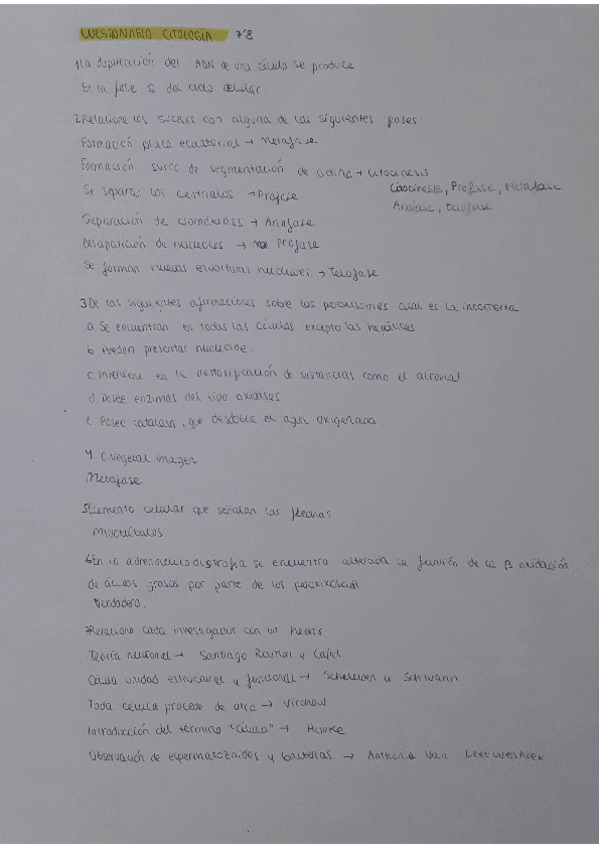 CUESTIONARIO CITOLOGÍA 7'8
1 La duplicación del ADN de una célula se produce
En la fase S del ciclo celular.
2 Relacione los sucesos con alguna de las siguientes fases
Formación placa ecuatorial → Metafase
Formación surco de segmentación de actina → Citocinesis
Se separan los centriolos → Profase
Citocinesis, Profase, Metafase
Anafase, telofase
Separación de cromátidas → Anafase
Desaparición de nucleolos → Profase
Se forman nuevas envolturas nucleares → Telofase
3 De las siguientes afirmaciones sobre los peroxisomas cual es la incorrecta
a Se encuentran en todas las células excepto las hepáticas
b Pueden presentar nucleoide.
c Interviene en la detoxificación de sustancias como el alcohol.
d Posee enzimas del tipo oxidasas
e Posee catalasa, que desdobla el agua oxigenada.
4 C vegetal imagen
Metafase.
5 Elemento celular que señalan las flechas
Microtúbulos
6 En la adrenoleucodistrofia se encuentra alterada la función de la β oxidación
de ácidos grasos por parte de los peroxisomas
Verdadero.
7 Relacione cada investigador con un hecho
Teoría neuronal → Santiago Ramón y Cajal
Célula unidad estructural y funcional → Scheleiden y Schwann
Toda célula procede de otra → Virchow
Introducción del término "célula" → Hooke
Observación de espermatozoides y bacterias → Anthonie Van Leeuwenhoek